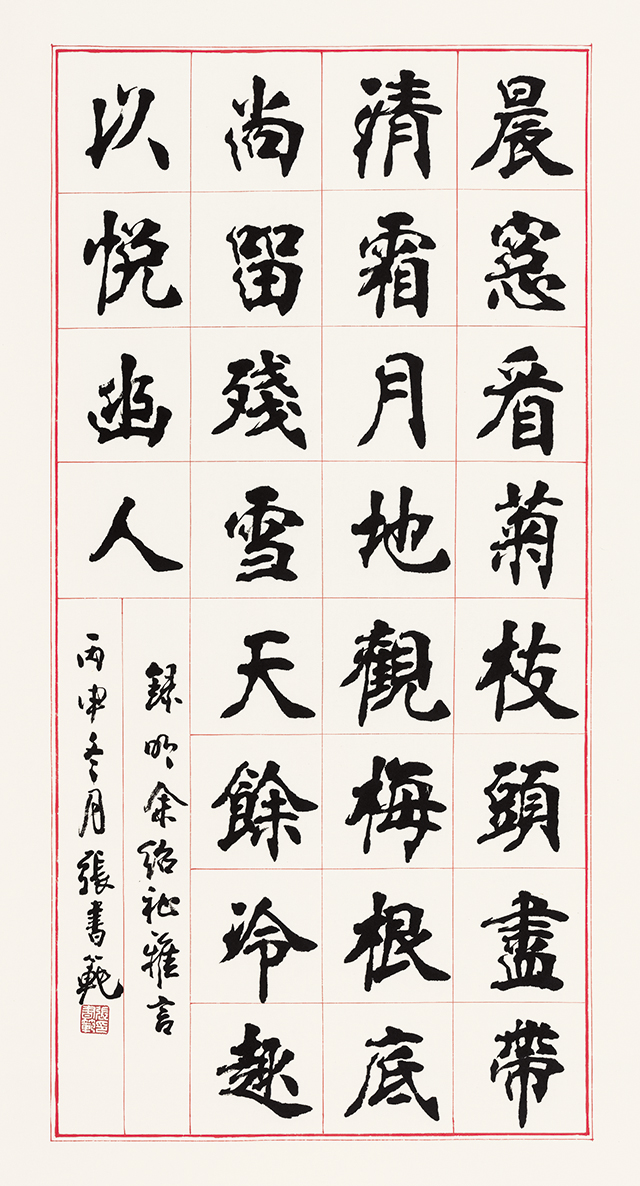 晨窓看菊枝頭盡帶
清霜月地觀梅根底
尚留殘雪天餘冷趣
以悦幽人
錄明余紹祉雅言
丙申冬月張書範